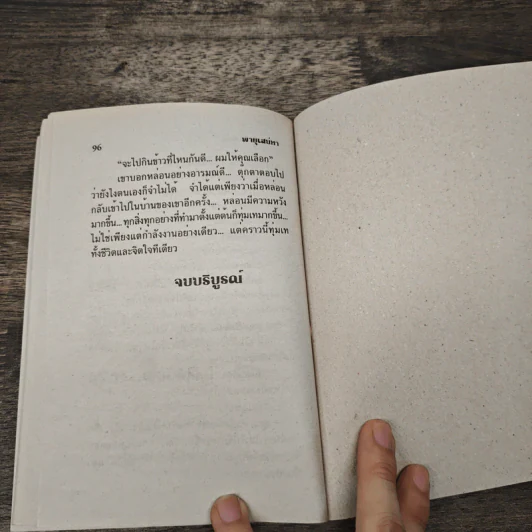 96
พายุเสน่หา
“จะไปกินข้าวที่ไหนกันดี... ผมให้คุณเลือก”
เขาบอกหล่อนอย่างอารมณ์ดี... ตุ๊กตาตอบไป
ว่ายังไงตนเองก็จำไม่ได้ จำได้แต่เพียงว่าเมื่อหล่อน
กลับเข้าไปในบ้านของเขาอีกครั้ง... หล่อนมีความหวัง
มากขึ้น... ทุกสิ่งทุกอย่างที่ทำมาตั้งแต่ต้นก็ทุ่มเทมากขึ้น...
ไม่ใช่เพียงแต่กำลังงานอย่างเดียว... แต่คราวนี้ทุ่มเท
ทั้งชีวิตและจิตใจทีเดียว
จบบริบูรณ์